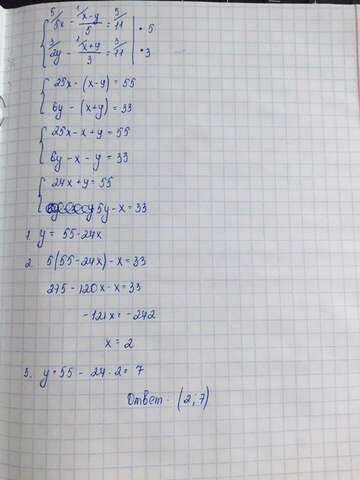 5/ 5x - 1/ (x-y)/5 = 5/ 11 | · 5
3/ 2y - 1/ (x+y)/3 = 3/ 11 | · 3
25x - (x-y) = 55
6y - (x+y) = 33
25x - x + y = 55
6y - x - y = 33
24x + y = 55
5y - x = 33
1. y = 55 - 24x
2. 5(55 - 24x) - x = 33
275 - 120x - x = 33
-121x = -242
x = 2
3. y = 55 - 24 · 2 = 7
Ответ - (2; 7)